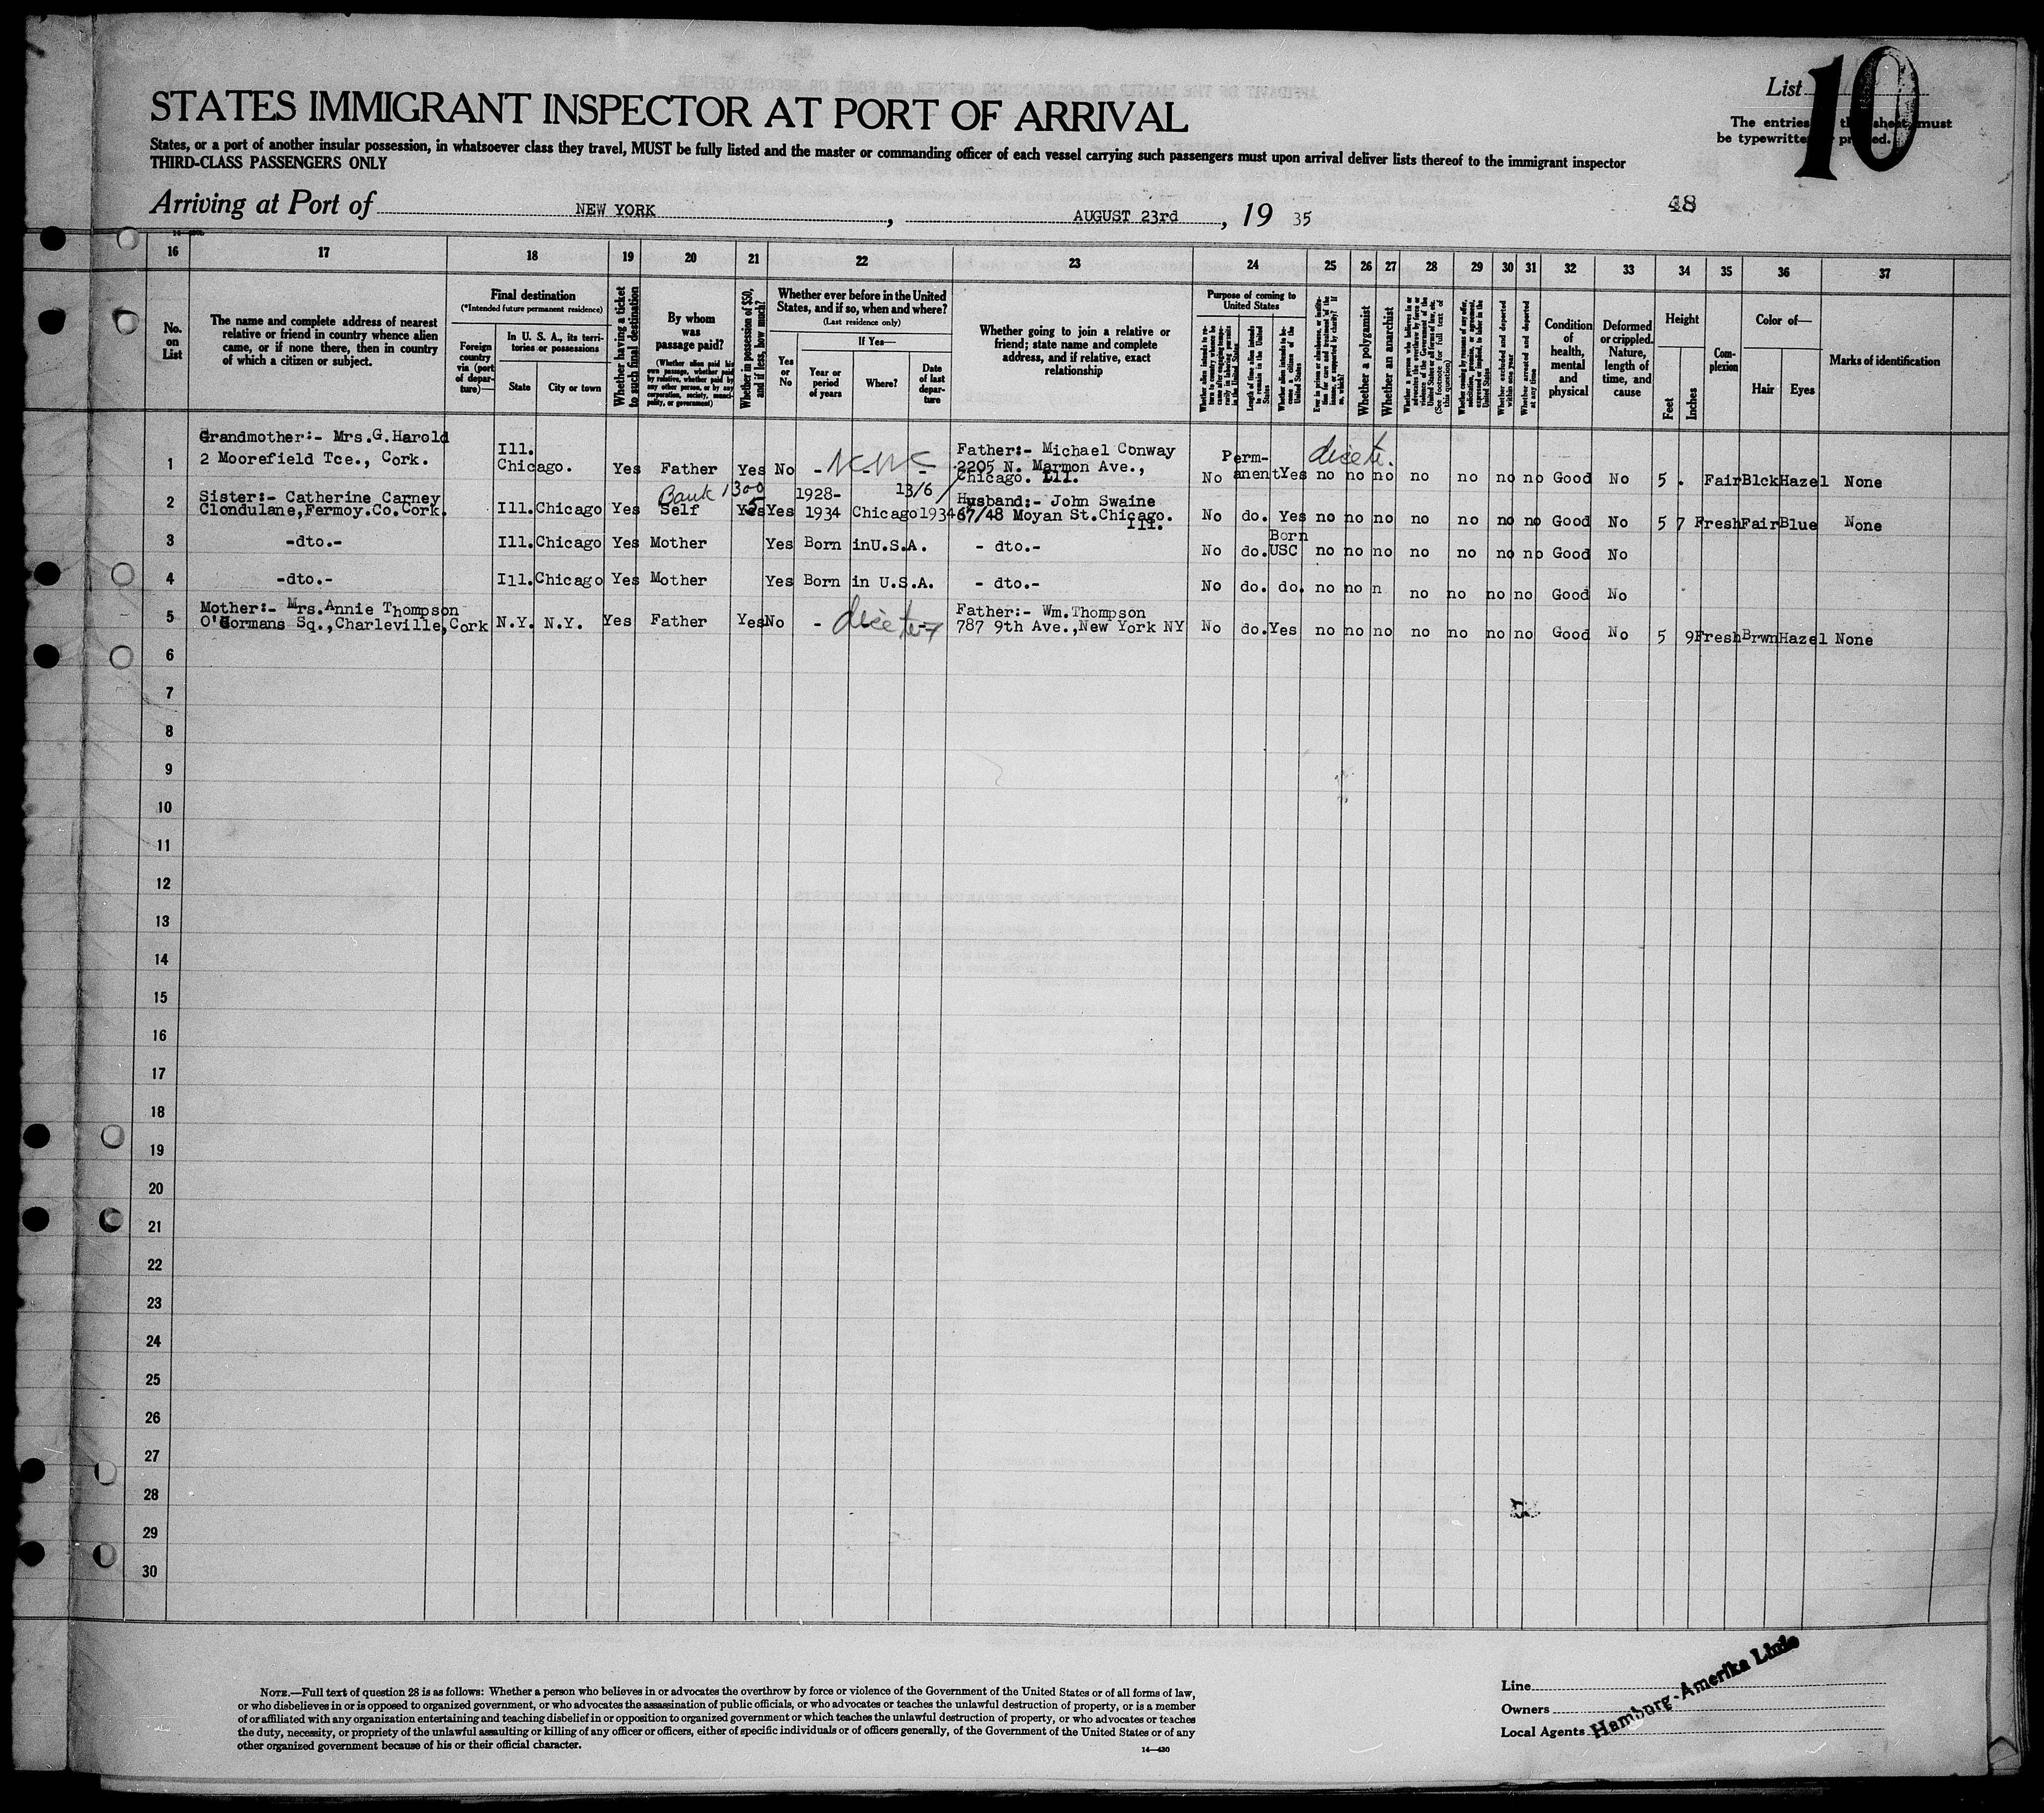 List 10
STATES IMMIGRANT INSPECTOR AT PORT OF ARRIVAL
The entries sheet must
be typewritten
States, or a port of another insular possession, in whatsoever class they travel, MUST be fully listed and the master or commanding officer of each vessel carrying such passengers must upon arrival deliver lists thereof to the immigrant inspector
THIRD-CLASS PASSENGERS ONLY
Arriving at Port of NEW YORK, AUGUST 23rd, 19 35
48
16 17 18 19 20 21 22 23 24 25 26 27 28 29 30 31 32 33 34 35 36 37
No. on List
The name and complete address of nearest
relative or friend in country whence alien
came, or if none there, then in country
of which a citizen or subject.
Final destination
(*Intended future permanent residence)
Foreign country via (port of departure)—
In U. S. A., its territories or possessions
State
City or town
Whether having a ticket to such final destination
By whom was passage paid?
(Whether alien paid his own passage, whether paid by relative, whether paid by any other person, or by any corporation, society, municipality, or government)
Whether in possession of $50, and if less, how much?
Whether ever before in the United
States, and if so, when and where?
(Last residence only)
Yes or No
If Yes—
Year or period of years
Where?
Date of last departure
Whether going to join a relative or
friend; state name and complete
address, and if relative, exact
relationship
Purpose of coming to United States
Length of time alien intends to remain in the United States
Whether alien intends to become a citizen of the United States
Whether a polygamist
Whether an anarchist
(See footnote for full text of this question)
Whether arrested and deported within one year
Whether arrested and deported at any time
Condition of health, mental and physical
Deformed or crippled. Nature, length of time, and cause
Height
Feet
Inches
Complexion
Color of—
Hair
Eyes
Marks of identification
Grandmother:- Mrs.G.Harold
1 2 Moorefield Tce., Cork. Ill. Chicago. Yes Father Yes No - - Father:- Michael Conway 2205 N. Marmon Ave., Chicago. Ill. No Permanent Yes no no no no no no no Good No 5 . Fair Blck Hazel None
Bank 1300 5 13/6/
2 Sister:- Catherine Carney Clondulane,Fermoy.Co.Cork. Ill. Chicago Yes Self Yes Yes 1928-1934 Chicago 1934 Husband:- John Swaine 67/48 Moyan St.Chicago. Ill. No do. Yes no no no no no no no Good No 5 7 Fresh Fair Blue None
3 -dto.- Ill. Chicago Yes Mother Yes Born in U.S.A. - dto.- No do. Born USC no no no no no no no Good No
4 -dto.- Ill. Chicago Yes Mother Yes Born in U.S.A. - dto.- No do. do. no no n no no no no Good No
5 Mother:- Mrs.Annie Thompson O'Gormans Sq.,Charleville,Cork N.Y. N.Y. Yes Father Yes No - Father:- Wm.Thompson 787 9th Ave.,New York NY No do. Yes no no no no no no no Good No 5 9 Fresh Brwn Hazel None
6
7
8
9
10
11
12
13
14
15
16
17
18
19
20
21
22
23
24
25
26
27
28
29
30
NOTE.—Full text of question 28 is as follows: Whether a person who believes in or advocates the overthrow by force or violence of the Government of the United States or of all forms of law,
or who disbelieves in or is opposed to organized government, or who advocates the assassination of public officials, or who advocates or teaches the unlawful destruction of property, or is a member
of or affiliated with any organization entertaining and teaching disbelief in or opposition to organized government or which teaches the unlawful destruction of property, or who advocates or teaches
the duty, necessity, or propriety of the unlawful assaulting or killing of any officer or officers, either of specific individuals or of officers generally, of the Government of the United States or of any
other organized government because of his or their official character.
14—430
Line
Owners
Local Agents
Hamburg-Amerika Linie